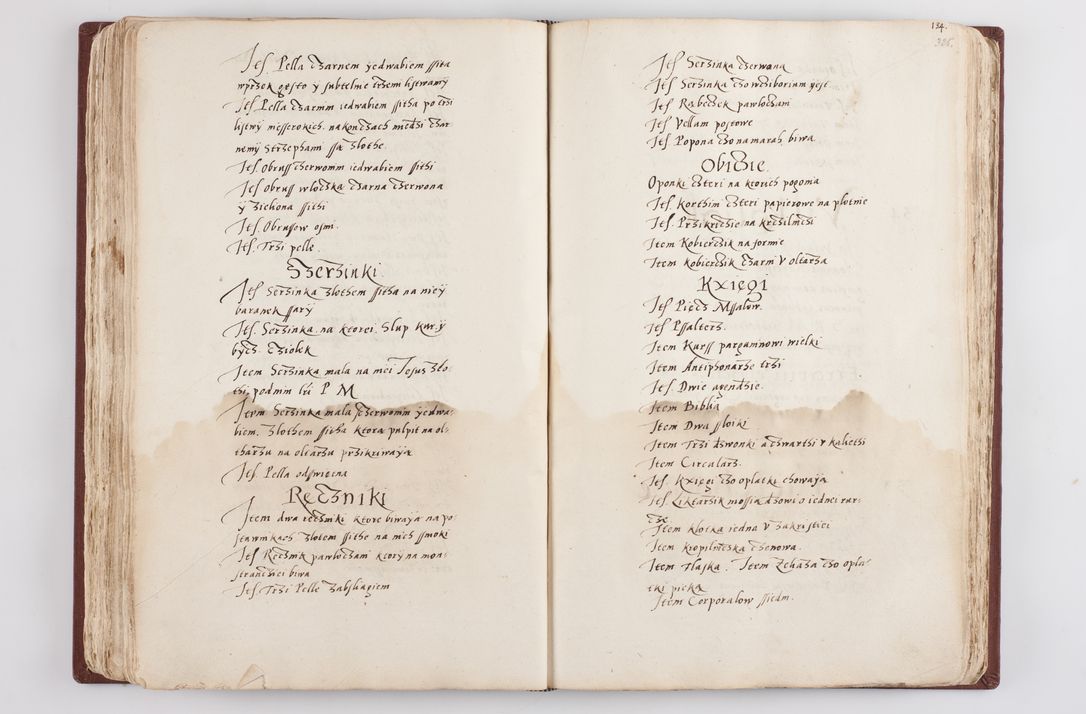 Jtſ Pella Czarnem yedwabiem ſſita
wprzok gęſto y ſubtelnie trzemi liſtwamÿ
Jtſ Pella Czarnim iedwabiem ſſitha po trzi
liſtwÿ na konczach miedzi czar
nemÿ Strzephami ſſą zlothe.
Jtſ Obruſſ Czerwonim iedwabiem ſſithi
Jtſ obruſſ wloczka czarna czerwona
ÿ zieliona ſſithi
Jtſ. Obruſſow oſmi.
Jtſ. Trzi pelle.
Szerzinki.
Jtſ Serzinka zlothem ſſitha na nieÿ
baranek ſſarÿ
Jtſ. Serzinka na ktorei. Slup kur ÿ
bÿcz. Cziolek
Jtem Serzinka mala na niei Jeſus zlo
thi podnim lri P M
Jtem Serzinka mala Czerwonim ÿedwa:
biem. zlothem ſſitha ktora pulpit na ol:
tharzu na oltarzu przikriwaÿa
Jtſ Pella odſwiętna
Ręczniki
Jtem dwa ręczniki ktore biwaÿa na po
ſtawnikach zlotem ſſithe na nich ſmoki
Jtſ Recznik pawloczani ktorÿ na mon:
ſtranciei biwa
Jtſ Trzi Pelle
134.
Jtſ Serzinka czerwona
Jtſ Serzinka czo wcziborium ÿeſt
Jtſ Rąbeczek pawloczani
Jtſ Vellam poſtowe
Jtſ Popona czo na marach biwa
Obiczie.
Oponki czteri na ktorich pogonia
Jtſ Korthin czteri papierowe na plotnie
Jtſ Przikriczie na krczilniczi
Jtem Kobierczik na formie
Jtem kobierczik czarni V oltarza
Kxięgi
Jtſ Piecz Mſſalow.
Jtſ Pſſalterz.
Jtem Kurſſ parguminowi wielki
Jtem Antiphonarze trzi
Jtſ. Dwie agendzie.
Jtem Biblia
Jtem Dwa ſſloiki
Jtem Trzi dzwonki a czwarthi v kaliethi
Jtem Circularz.
Jtſ. Kxięgi czo oplatki chowaÿa
Jtſ. Liktarzik moſſiadzowi o iednei rur:
cze
Jtem klotka iedna V Sakriſtiei
Jtem kropilniczka czenowa.
Jtem Flaſka. Jtem Zelaza czo opla:
tki pieką
Jtem Corporalow ſſiedm.